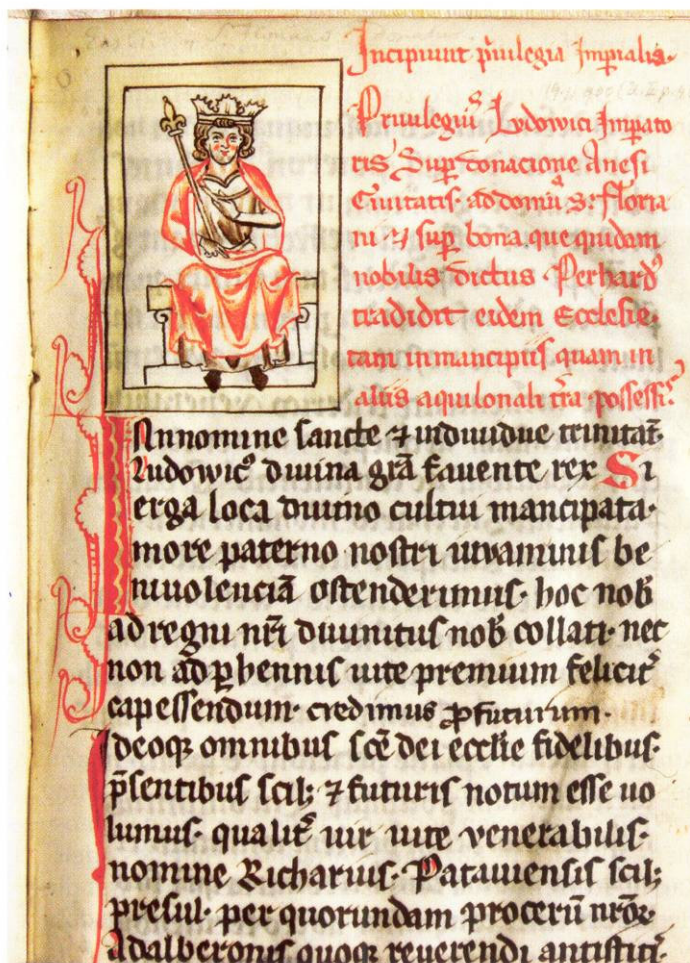 Incipiunt p̄uilegia Imp̄ialia·
Priuilegiū Lvdowici Impato
ris Sup̄ donacione Anesi
Ciuitatis· ad domū s: floria
ni ⁊ sup̄ bona que quidam
nobilis dictus Perhardꝰ
tradidit eidem Ecclesie·
tam in mancipiis quam in
aliis aquilonali t̄ra possessi
In nomine sancte ⁊ indiuidue trinitat̄
Ludowicꝰ diuina gr̄a fauente rex Si
erga loca diuino cultui mancipata·
more paterno nostri iuuaminis be
niuolenciā ostenderimus· hoc nob̄
ad regni nr̄i diuinitus nob̄ collati· nec
non ad ꝑhennis uite premium felicit̄
capessendum· credimus ꝓfuturum·
Ideoqꝫ omnibus sc̄e dei eccl̄ie fidelibus·
p̄sentibus scilꝫ ⁊ futuris notum esse uo
lumus· qualit̄ uir uite venerabilis·
nomine Richarius· Patauiensis scilꝫ
presul· per quorundam procerū nr̄oꝝ
Adalberonis quoqꝫ reuerendi antistiti·